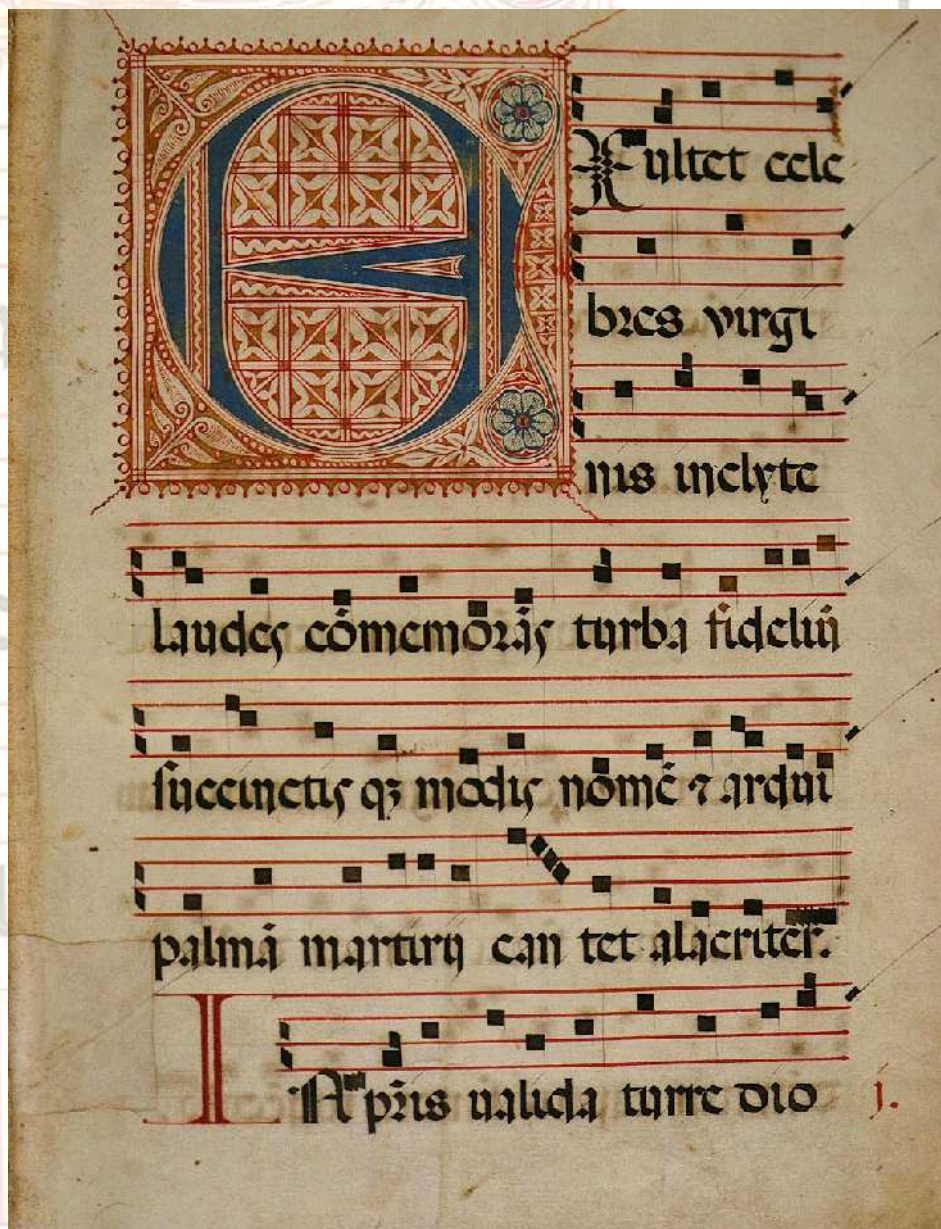 EXultet cele
bres virgi
nis inclyte
laudes cōmemorās turba fideliū
succinctis qꝫ modis nomē ⁊ ardui
palmā martirij can tet alacriter.
IN pr̄is ualida turre dio
j.